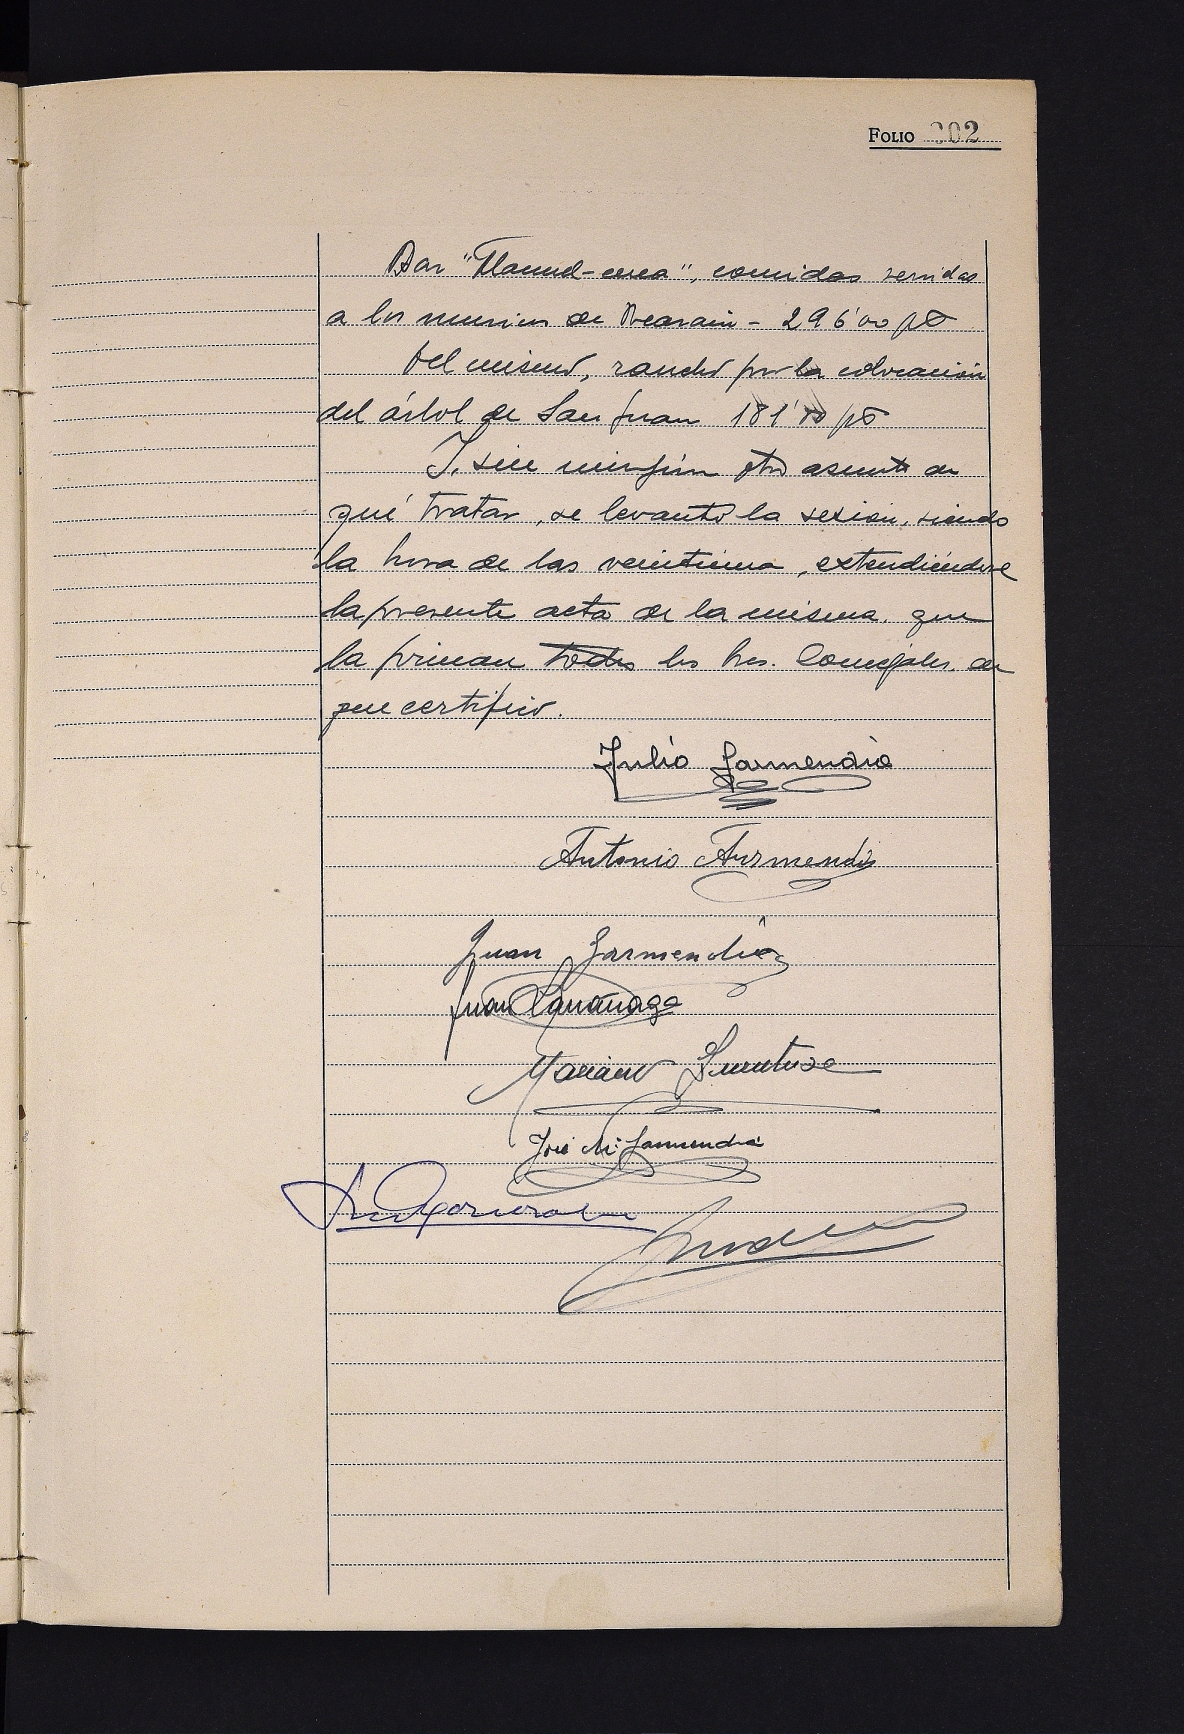 FOLIO 202
Bar "Manuel-enea", comidas servidas
a los músicos de Beasain - 296'00 pts
Del mismo, rancho por la colocación
del árbol de San Juan 181'80 pts
Y, sin ningún otro asunto de
qué tratar, se levantó la sesión, siendo
la hora de las veintiuna, extendiéndose
la presente acta de la misma, que
la firman todos los Srs. Concejales, de
que certifico.
Julio Garmendia
Antonio Aurmendi
Juan Garmendia
Juan
Mariano
José Mª Garmendia